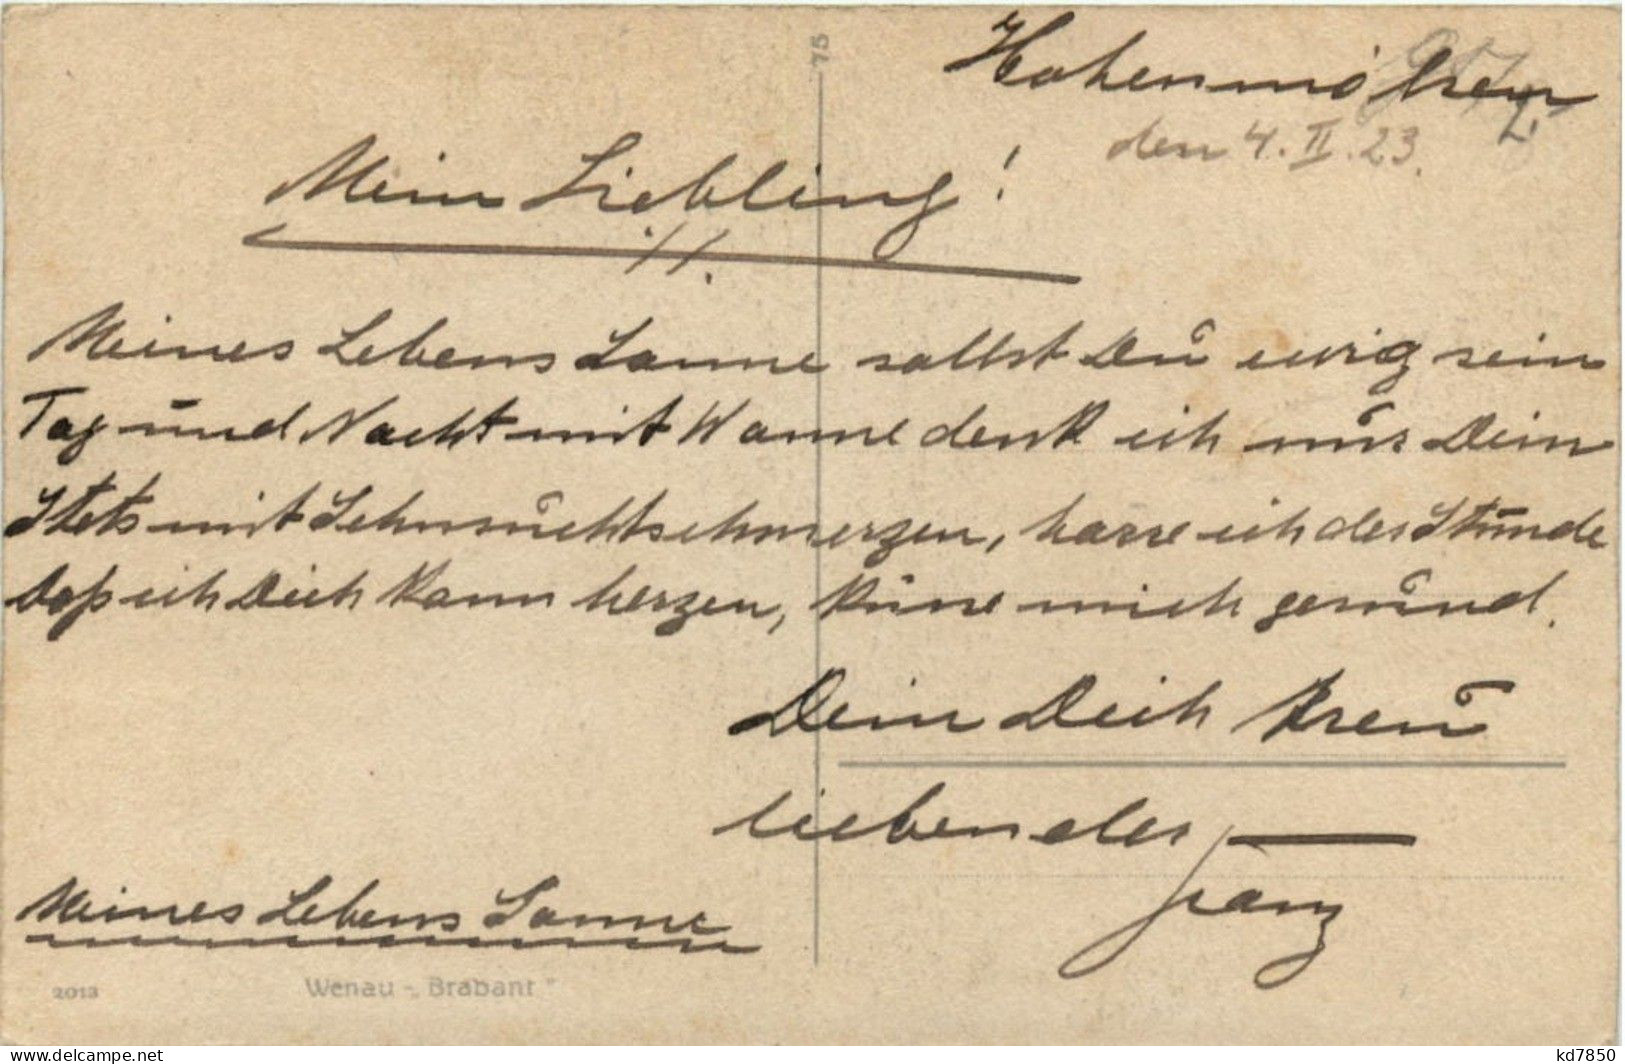 75
Hohenmölsen
den 4. II. 23.
Mein Liebling!
Meines Lebens Sonne sollst Du ewig sein
Tag und Nacht mit Wonne denk ich nur Dein
Stets mit Sehnsuchtschmerzen, harre ich der Stunde
Daß ich Dich kann herzen,küsse mich gesund.
Dein Dich treu
liebender
Franz
Meines Lebens Sonne
2013 Wenau - „Brabant"
kd7850